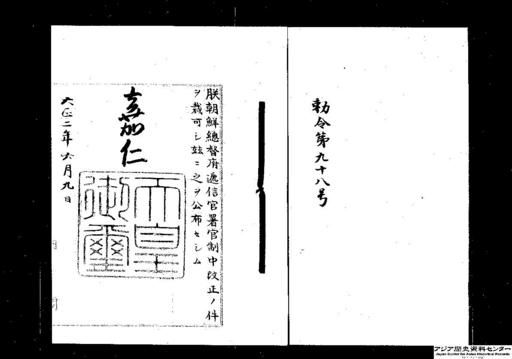 勅令第九十八号
朕朝鮮總督府遞信官署官制中改正ノ件
ヲ裁可シ玆ニ之ヲ公布セシム
嘉仁
天皇
御璽
大正二年六月九日
アジア歴史資料センター
Japan Center for Asian Historical Records